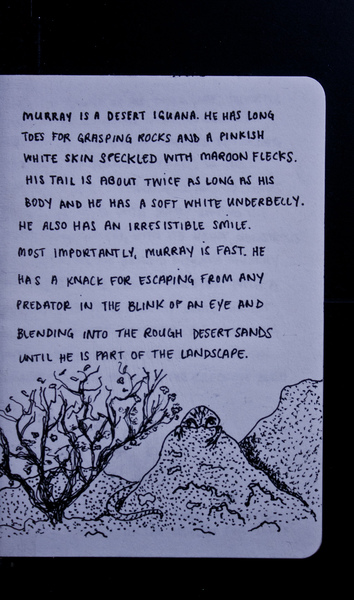 MURRAY IS A DESERT IGUANA. HE HAS LONG
TOES FOR GRASPING ROCKS AND A PINKISH
WHITE SKIN SPECKLED WITH MAROON FLECKS.
HIS TAIL IS ABOUT TWICE AS LONG AS HIS
BODY AND HE HAS A SOFT WHITE UNDERBELLY.
HE ALSO HAS AN IRRESISTIBLE SMILE.
MOST IMPORTANTLY, MURRAY IS FAST. HE
HAS A KNACK FOR ESCAPING FROM ANY
PREDATOR IN THE BLINK OF AN EYE AND
BLENDING INTO THE ROUGH DESERT SANDS
UNTIL HE IS PART OF THE LANDSCAPE.